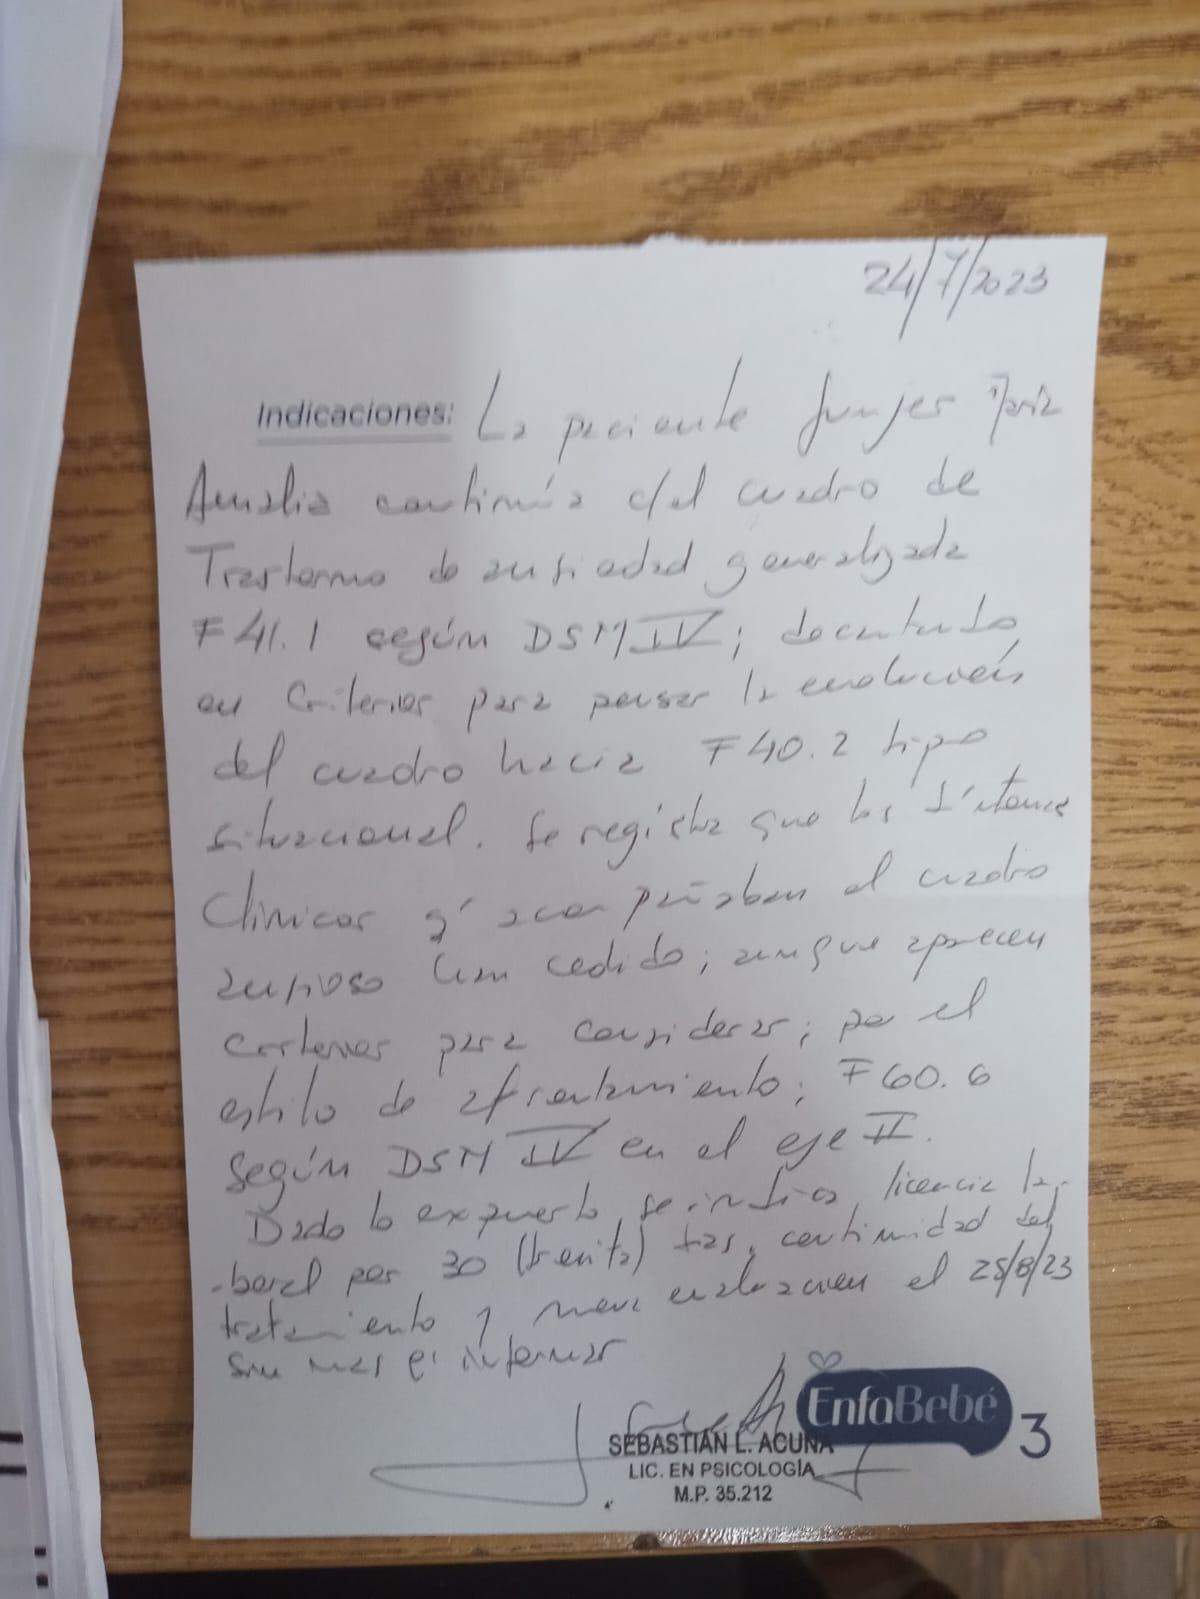 24/7/2023
Indicaciones: La paciente
Amalia continúa c/el cuadro de
Trastorno de ansiedad generalizada
F 41.1 según DSM IV;
en criterios para pensar la evolución
del cuadro hacia F 40.2 tipo
situacional. Se registra que los síntomas
Clínicos q' acompañaban el cuadro
ansioso han cedido; aunque aparecen
criterios para considerar; por el
estilo de afrontamiento; F 60.6
según DSM IV en el eje II.
Dado lo expuesto, se indica licencia la-
-boral por 30 (treinta) días, continuidad del
tratamiento y nueva evaluación el 25/8/23
Sin más p' informar
EnfaBebé 3
SEBASTIÁN L. ACUÑA
LIC. EN PSICOLOGÍA
M.P. 35.212